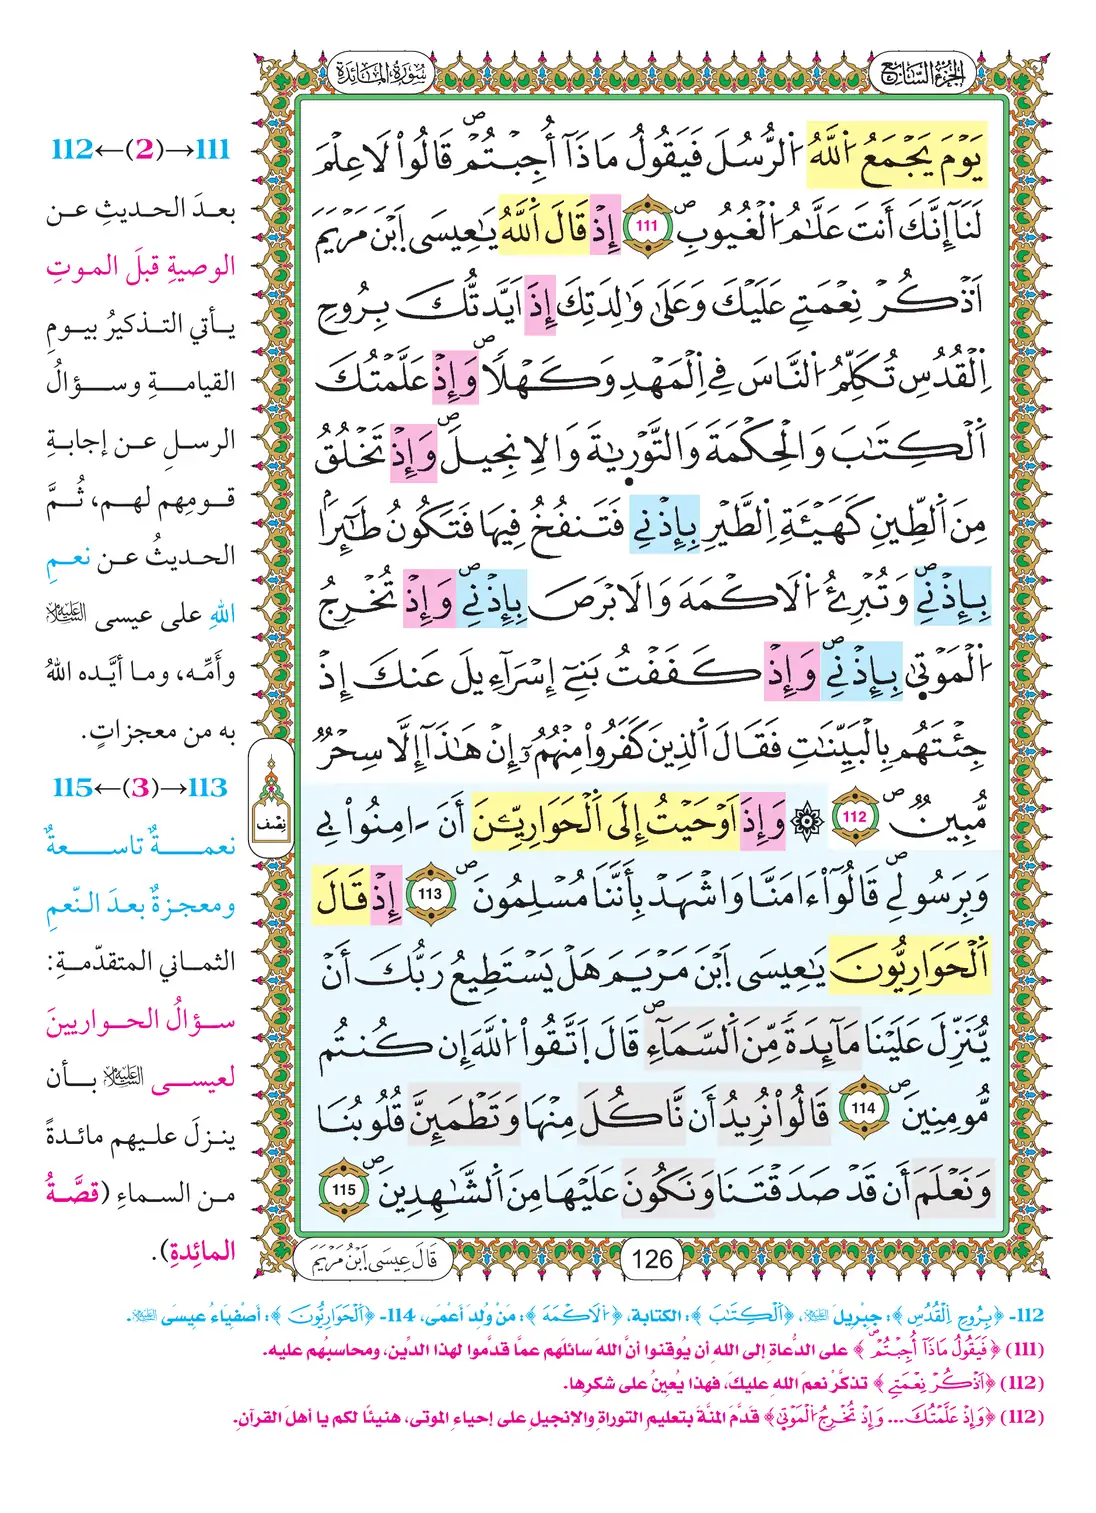 الجزء السابع
سورة المائدة
يَوْمَ يَجْمَعُ اُ۬للَّهُ اُ۬لرُّسُلَ فَيَقُولُ مَاذَآ أُجِبْتُمْۖ قَالُواْ لَا عِلْمَ
لَنَآ إِنَّكَ أَنتَ عَلَّٰمُ اُ۬لْغُيُوبِۖ 111 إِذْ قَالَ اَ۬للَّهُ يَٰعِيسَى اَ۪بْنَ مَرْيَمَ
اَ۟ذْكُرْ نِعْمَتِے عَلَيْكَ وَعَلَىٰ وَٰلِدَتِكَ إِذَ اَيَّدتُّكَ بِرُوحِ
اِ۬لْقُدُسِ تُكَلِّمُ اُ۬لنَّاسَ فِے اِ۬لْمَهْدِ وَكَهْلاٗۖ وَإِذْ عَلَّمْتُكَ
اَ۬لْكِتَٰبَ وَالْحِكْمَةَ وَالتَّوْر۪يٰةَ وَالِانجِيلَۖ وَإِذْ تَخْلُقُ
مِنَ اَ۬لطِّينِ كَهَيْـَٔةِ اِ۬لطَّيْرِ بِإِذْنِے فَتَنفُخُ فِيهَا فَتَكُونُ طَٰٓئِراَۢ
بِإِذْنِےۖ وَتُبْرِئُ اُ۬لَاكْمَهَ وَالَابْرَصَ بِإِذْنِےۖ وَإِذْ تُخْرِجُ
اُ۬لْمَوْت۪يٰ بِإِذْنِےۖ وَإِذْ كَفَفْتُ بَنِےٓ إِسْرَآءِيلَ عَنكَ إِذْ
جِئْتَهُم بِالْبَيِّنَٰتِ فَقَالَ اَ۬لذِينَ كَفَرُواْ مِنْهُمُۥٓ إِنْ هَٰذَآ إِلَّا سِحْرٞ
مُّبِينٞۖ 112 ۞ وَإِذَ اَوْحَيْتُ إِلَى اَ۬لْحَوَارِيِّـۧنَ أَنَ اٰمِنُواْ بِے
وَبِرَسُولِےۖ قَالُوٓاْ ءَامَنَّا وَاشْهَدْ بِأَنَّنَا مُسْلِمُونَۖ 113 إِذْ قَالَ
اَ۬لْحَوَارِيُّونَ يَٰعِيسَى اَ۪بْنَ مَرْيَمَ هَلْ يَسْتَطِيعُ رَبُّكَ أَنْ
يُّنَزِّلَ عَلَيْنَا مَآئِدَةٗ مِّنَ اَ۬لسَّمَآءِۖ قَالَ اَ۪تَّقُواْ اُ۬للَّهَ إِن كُنتُم
مُّومِنِينَۖ 114 قَالُواْ نُرِيدُ أَن نَّاكُلَ مِنْهَا وَتَطْمَئِنَّ قُلُوبُنَا
وَنَعْلَمَ أَن قَدْ صَدَقْتَنَا وَنَكُونَ عَلَيْهَا مِنَ اَ۬لشَّٰهِدِينَۖ 115
نصف
126
قَالَ عِيسَى اَ۪بْنُ مَرْيَمَ
111→(2)←112
بعدَ الحديثِ عن
الوصيةِ قبلَ الموتِ
يأتي التذكيرُ بيومِ
القيامةِ وسؤالُ
الرسلِ عن إجابةِ
قومِهم لهم، ثُمَّ
الحديثُ عن نعمِ
اللهِ على عيسى عليه السلام
وأمِّه، وما أيَّده اللهُ
به من معجزاتٍ.
113→(3)←115
نعمةٌ تاسعةٌ
ومعجزةٌ بعدَ النّعمِ
الثماني المتقدّمةِ:
سؤالُ الحواريينَ
لعيسى عليه السلام بأن
ينزلَ عليهم مائدةً
من السماءِ (قصَّةُ
المائِدةِ).
112- ﴿بِرُوحِ اِ۬لْقُدُسِ﴾: جِبْرِيلَ عليه السلام، ﴿اَ۬لْكِتَٰبَ﴾: الكتابة، ﴿اُ۬لَاكْمَهَ﴾: مَنْ وُلِدَ أَعْمَى، 114- ﴿اَ۬لْحَوَارِيُّونَ﴾: أَصْفِيَاءُ عِيسَى عليه السلام.
(111) ﴿فَيَقُولُ مَاذَآ أُجِبْتُمْۖ﴾ على الدُّعاةِ إلى اللهِ أن يُوقنوا أنَّ اللهَ سائلُهم عمَّا قدَّموا لهذا الدِّينِ، ومحاسبُهم عليه.
(112) ﴿اَ۟ذْكُرْ نِعْمَتِے﴾ تذكَّرْ نعمَ اللهِ عليكَ، فهذا يُعينُ على شكرِها.
(112) ﴿وَإِذْ عَلَّمْتُكَ... وَإِذْ تُخْرِجُ اُ۬لْمَوْت۪يٰ﴾ قدَّمَ المنَّةَ بتعليمِ التوراةِ والإنجيلِ على إحياءِ الموتى، هنيئًا لكم يا أهلَ القرآنِ.